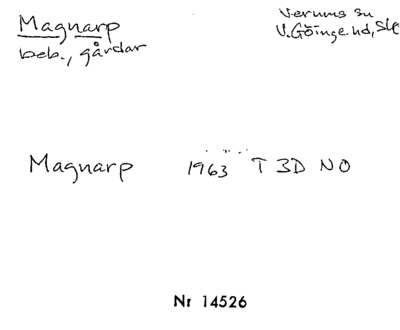 Magnarp
beb., gårdar
Verums sn
V. Göinge hd, Sk
Magnarp 1963 T 3D NO
Nr 14526